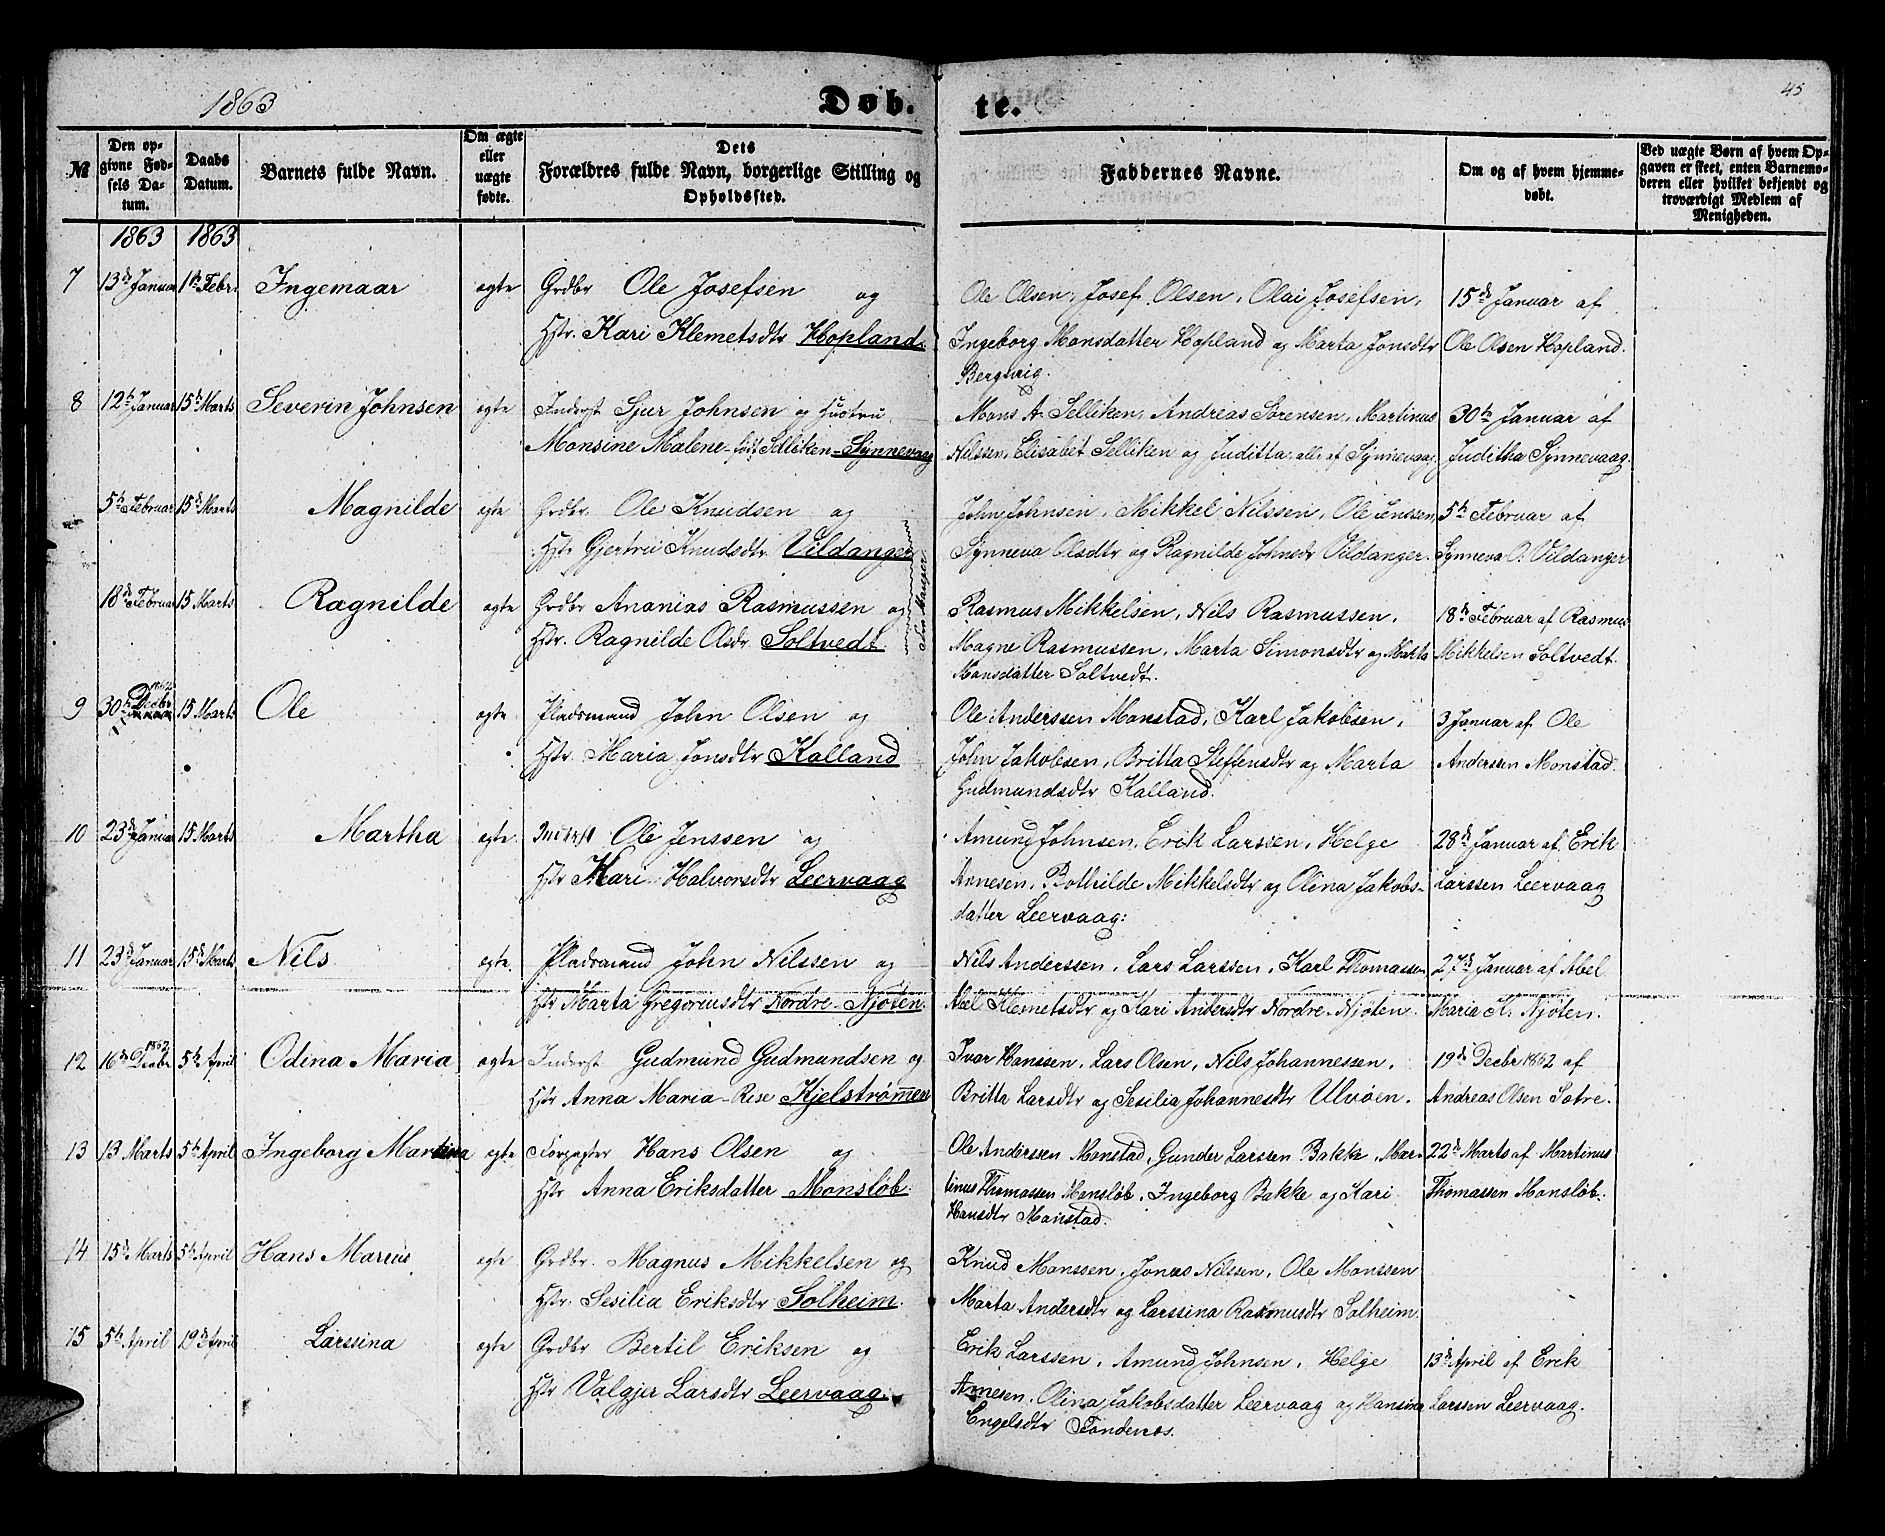 1863 Døb. te. 45
№ Den opgivne Fødsels Datum. Daabs Datum. Barnets fulde Navn. Om ægte eller uægte fødte. Dets Forældres fulde Navn, borgerlige Stilling og Opholdssted. Faddernes Navne. Om og af hvem hjemmedøbt. Ved uægte Børn af hvem Opgaven er skeet, enten Barnemoderen eller hvilket bekjendt og troværdigt Medlem af Menigheden.
1863 1863
7 13de Januar 1ste Febr. Ingemaar ægte Grdbr Ole Josefsen og Ole Olsen, Josef Olsen, Olai Josefsen, 15de Januar af
Hstr. Kari Klemetsdtr Hopland. Ingeborg Monsdatter Hopland og Marta Jonsdtr Ole Olsen Hopland.
Bergsvig.
8 12te Januar 15de Marts Severin Johnsen ægte Inderst Sjur Johnsen og Hustru Mons A. Selliken, Andreas Sørensen, Martinus 30te Januar af
Monsine Malene født Selliken - Synnevaag Nilssen, Elisabet Selliken og Juditta, alle af Synnevaag. Juditha Synnevaag.
5te Februar 15de Marts Magnilde ægte Grdbr. Ole Knudsen og John Johnsen, Mikkel Nilssen, Ole Jenssen, 5te Februar af
Hstr Gjertru Knudsdtr Vildanger Synneva Olsdtr og Ragnilde Johnsdr Vildanger. Synneva O. Vildanger
18de Februar 15 Marts Ragnilde ægte Grdbr Ananias Rasmussen og Rasmus Mikkelsen, Nils Rasmussen, 18de Februar af Rasmus
Hstr. Ragnilde Olsdr Soltvedt. Magne Rasmussen, Marta Simonsdtr og Marta Mikkelsen Soltvedt.
Monsdatter Soltvedt.
9 30te Decbr 1862 15 Marts Ole ægte Pladsmand John Olsen og Ole Anderssen Monstad, Karl Jakobsen, 3 Januar af Ole
Hstr. Maria Jonsdtr Kalland John Jakobsen, Britta Steffensdtr og Marta Anderssen Monstad.
Gudmundsdtr Kalland.
10 23de Januar 15 Marts Martha ægte Inderst Ole Jenssen og Amund Johnsen, Erik Larssen, Helge 28de Januar af Erik
Hstr Kari Halvorsdtr Leervaag Arnesen, Bothilde Mikkelsdtr og Olina Jakobs- Larssen Leervaag
datter Leervaag:
11 23de Januar 15de Marts Nils ægte. Pladsmand John Nilssen og Nils Anderssen, Lars Larssen, Karl Thomassen 27de Januar af Abel
Hstr Marta Gregoriusdtr Nordre-Njøten. Abel Klemetsdtr og Kari Andersdtr Nordre-Njøten. Maria K. Njøten.
12 16de Decbr 1862 5te April Odina Maria ægte Inderst Gudmund Gudmundsen og Ivar Hanssen, Lars Olsen, Nils Johannessen, 19de Decbr 1862 af
Hstr Anna Maria Rise Kjelstrømmen Britta Larsdtr og Sesilia Johannesdtr Ulvøen. Andreas Olsen Sotre.
13 13 Marts 5te April Ingeborg Martina ægte Forpagter Hans Olsen og Ole Anderssen Monstad, Gunder Larssen Bakke, Mar- 22de Marts af Martinus
Hstr Anna Eriksdatter Monsløb. tinus Thomassen Monsløb, Ingeborg Bakke og Kari Thomassen Monsløb.
Hansdtr Monstad.
14 15de Marts 5te April Hans Marius ægte Grdbr. Magnus Mikkelsen og Knud Monssen, Jonas Nilssen, Ole Monssen
Hstr. Sesilia Eriksdtr Solheim. Marta Andersdtr og Larssina Rasmusdtr Solheim.
15 5te April 19de April Larssina ægte Grdbr Bertil Eriksen og Erik Larssen, Amund Johnsen, Helge 13de April af Erik
Hstr Valgjer Larsdtr Leervaag. Arnesen, Olina Jakobsdatter Leervaag og Hansina Larssen Leervaag.
Engelsdtr Tondenes.